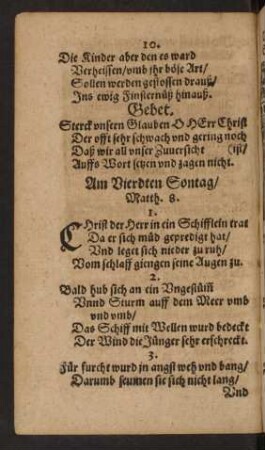 10.
Die Kinder aber den es ward
Verheissen/vmb jhr böse Art/
Sollen werden gestossen drauß/
Ins ewig Finsternüß hinauß.
Gebet.
Sterck vnsern Glauben O HErr Christ
Der offt sehr schwach vnd gering noch
Daß wir all vnser Zuuersicht (ist/
Auffs Wort setzen vnd zagen nicht.
Am Vierdten Sontag/
Matth. 8.
1.
CHrist der Herr in ein Schifflein trat
Da er sich müd gepredigt hat/
Vnd leget sich nieder zu ruh/
Vom schlaff giengen seine Augen zu.
2.
Bald hub sich an ein Vngestüm̃
Vnnd Sturm auff dem Meer vmb
vnd vmb/
Das Schiff mit Wellen wurd bedeckt
Der Wind die Jünger sehr erschreckt.
3.
Für furcht wurd jn angst weh vnd bang/
Darumb seumen sie sich nicht lang/
Vnd